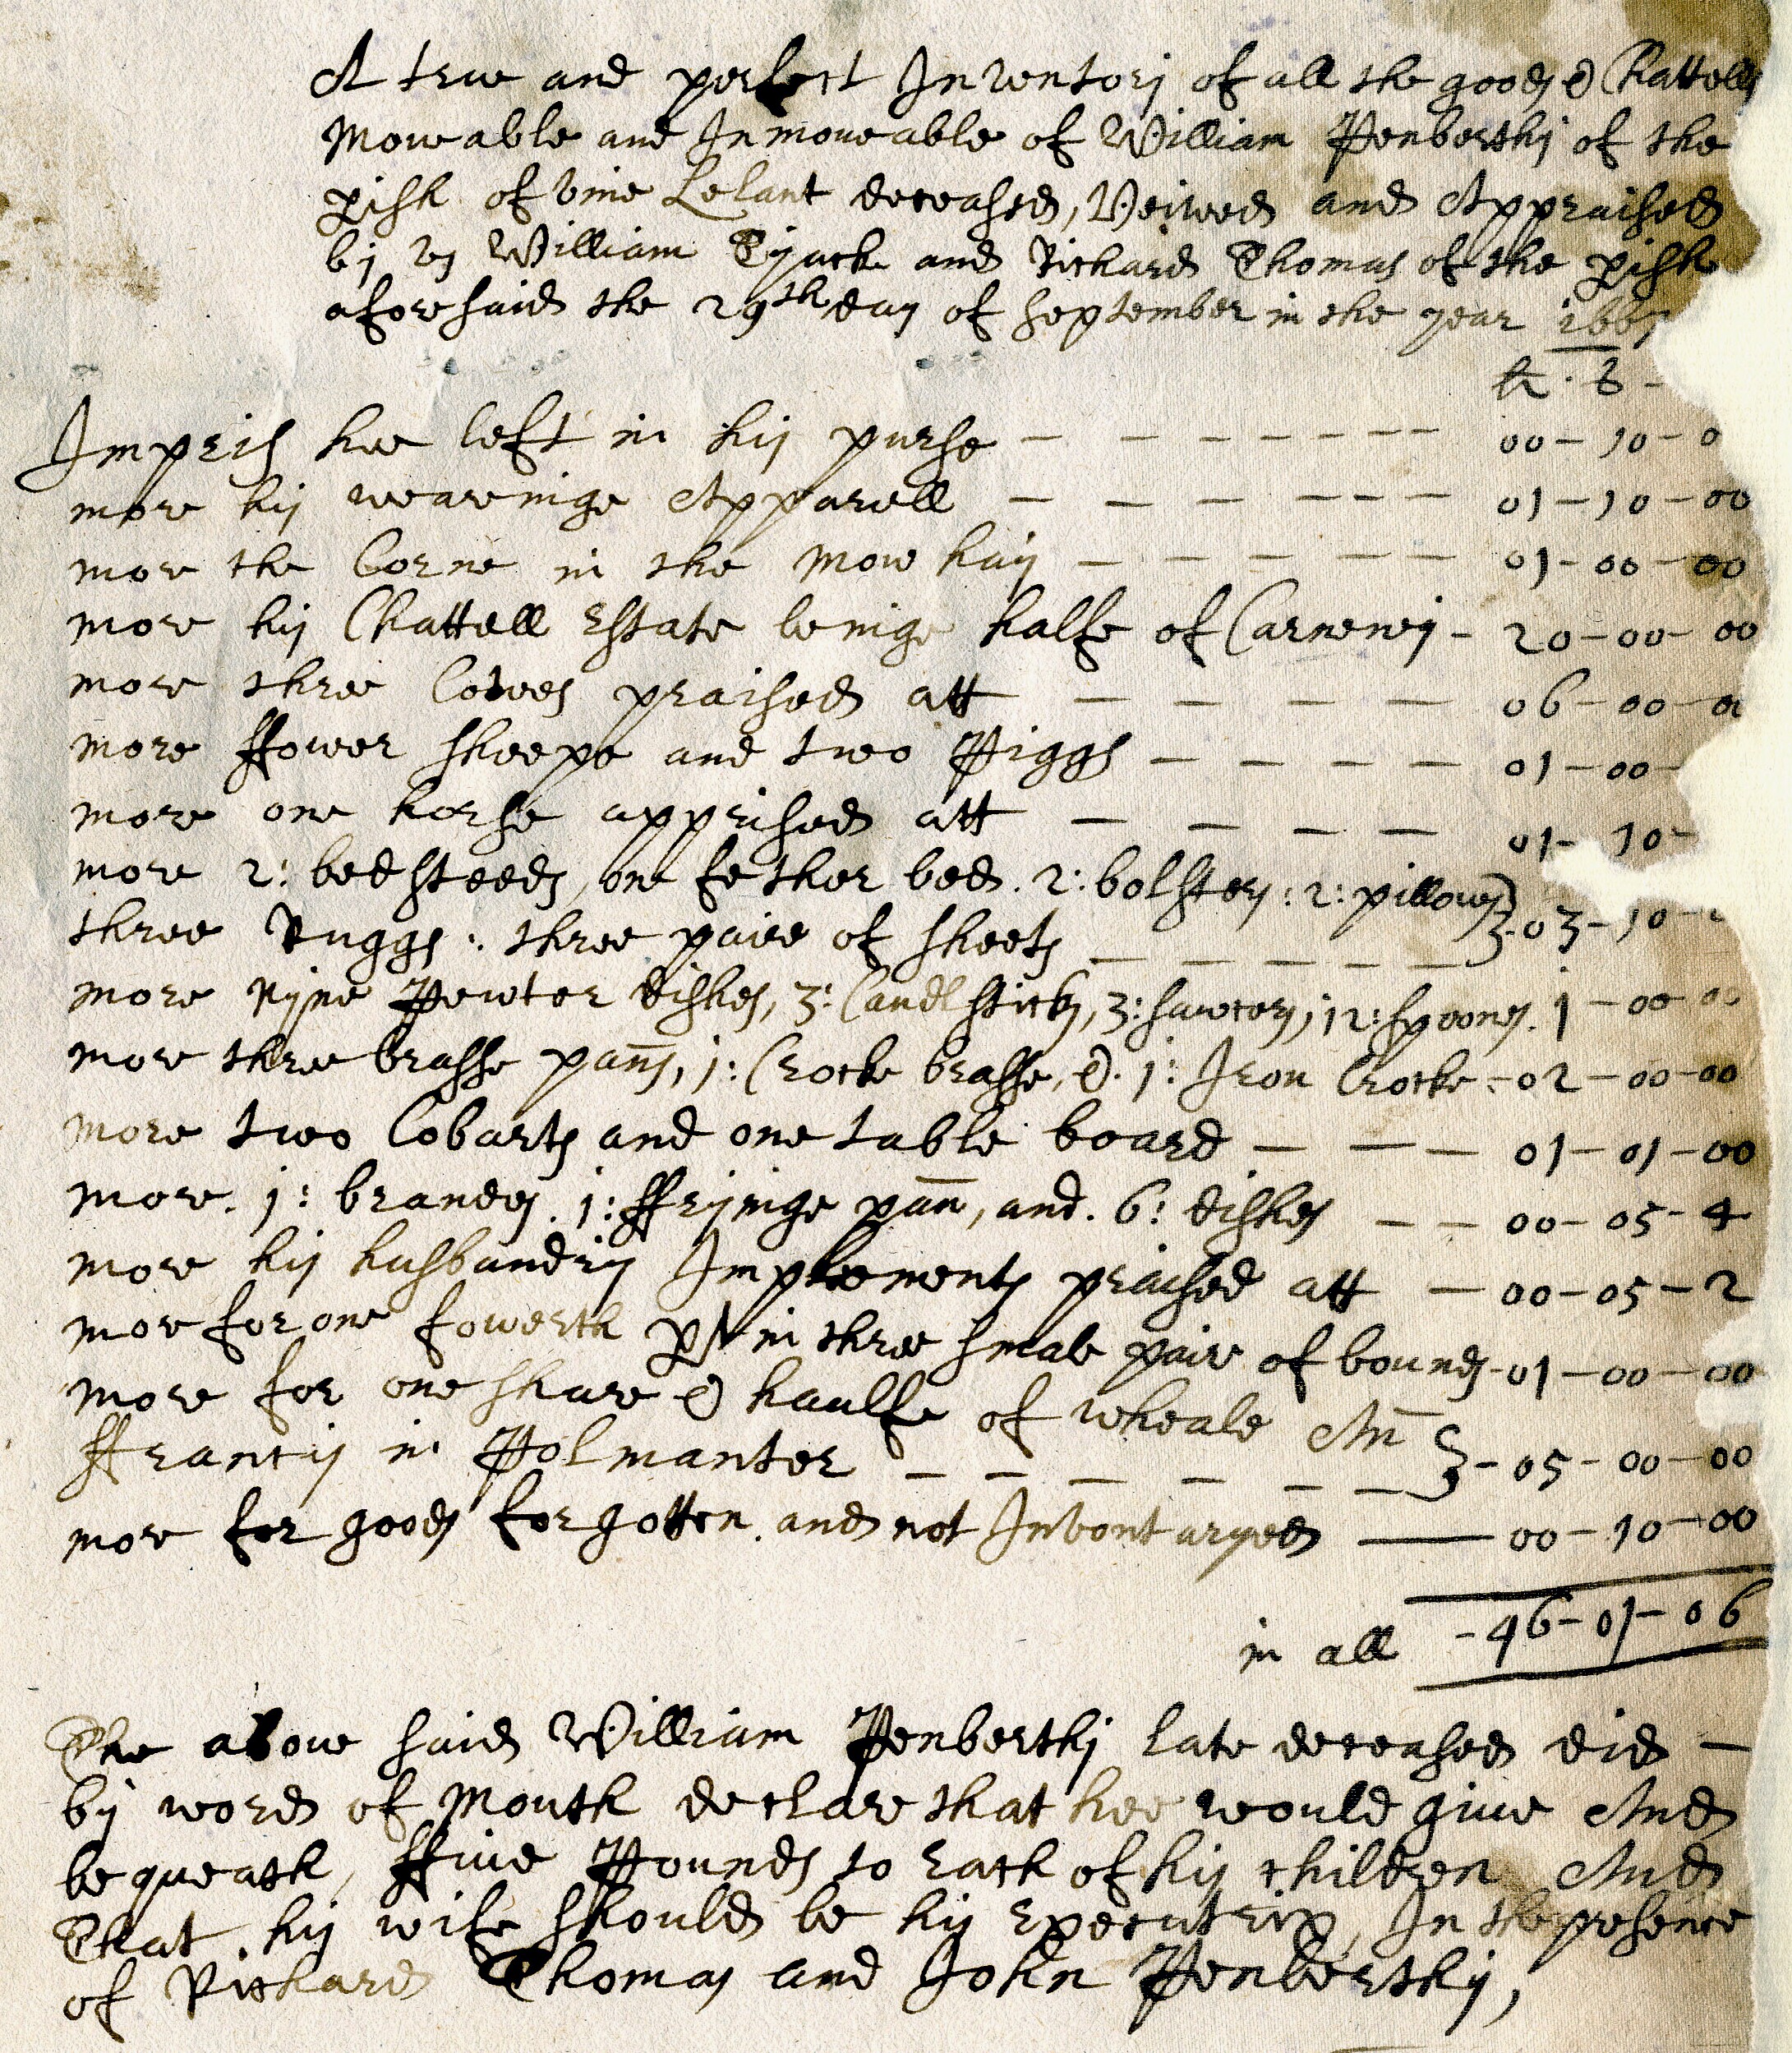 A true and perfect Inventorj of all the goods & Chattells
Moveable and Inmoueable of William Penberthj of the
pish of vnie Lelant deceased, Veiwed and Appraised
bj vs William Tyacke and Richard Thomas of the pish
aforesaid the 29th day of September in the year 1667
li · s -
Impris hee left in his purse - - - - - - - - 00 - 10 - 0
more his wearinge Apparell - - - - - - 01 - 10 - 00
more the Corne in the Mow hay - - - - - - 01 - 00 - 00
more his Chattell Estate beinge halfe of Carneney - 20 - 00 - 00
more three Cowes praised att - - - - - 06 - 00 - 0
more ffower sheepe and two Piggs - - - - 01 - 00 -
more one horse apprised att - - - - 01 - 10 -
more 2: bedsteeds, one fether bed. 2: bolsters: 2: pillows }
three Ruggs: three paire of sheets - - - - - } - 03 - 10 -
more nyne Pewter dishes, 3: Candlsticks, 3: sawcers, 12: spoones. 1 - 00 - 00
more three brasse pans, 1: Crocke brasse, &. 1: Iron Crocke - 02 - 00 - 00
more two Cobarts and one table board - - - 01 - 01 - 00
more. 1: brandes. 1: ffryinge pan, and. 6: dishes - - 00 - 05 - 4
more his husbandry Implements praised att - 00 - 05 - 2
more for one fowerth pt in three smale paire of bounds - 01 - 00 - 00
more for one share & haulfe of wheale An }
ffrancis in Polmanter - - - - - - } - 05 - 00 - 00
more for goods forgotten. and not Inventaryed - 00 - 10 - 00
in all - 46 - 01 - 06
The above said William Penberthj late deceased did -
by word of Mouth declare that hee would give And
bequeath, ffive Pounds to Each of his children And
That his wife should be his Executrix, In the presence
of Richard Thomas and John Penberthy,